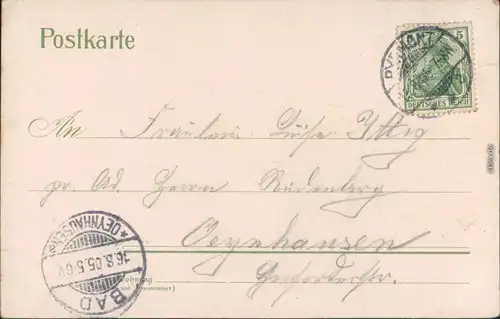 Postkarte
PYRMONT
5
DEUTSCHES REICH
An Fräulein Luise Ittig
pr. Ad. Herrn Rüdenberg
Oeynhausen
Herforderstr.
BAD OEYNHAUSEN
16.8.05.5-6N
Wohnung